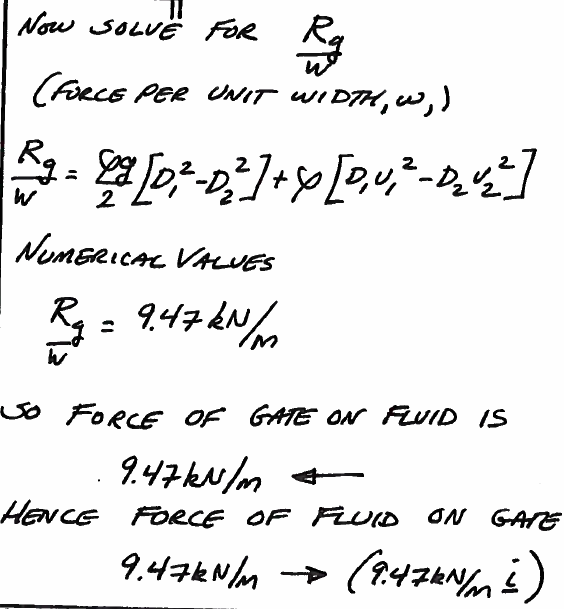 NOW SOLVE FOR Rg/w
(FORCE PER UNIT WIDTH, w,)
Rg/w = ρg/2 [D₁²-D₂²] + ρ [D₁v₁²-D₂v₂²]
NUMERICAL VALUES
Rg/w = 9.47 kN/m
SO FORCE OF GATE ON FLUID IS
9.47 kN/m ←
HENCE FORCE OF FLUID ON GATE
9.47 kN/m → (9.47 kN/m i)